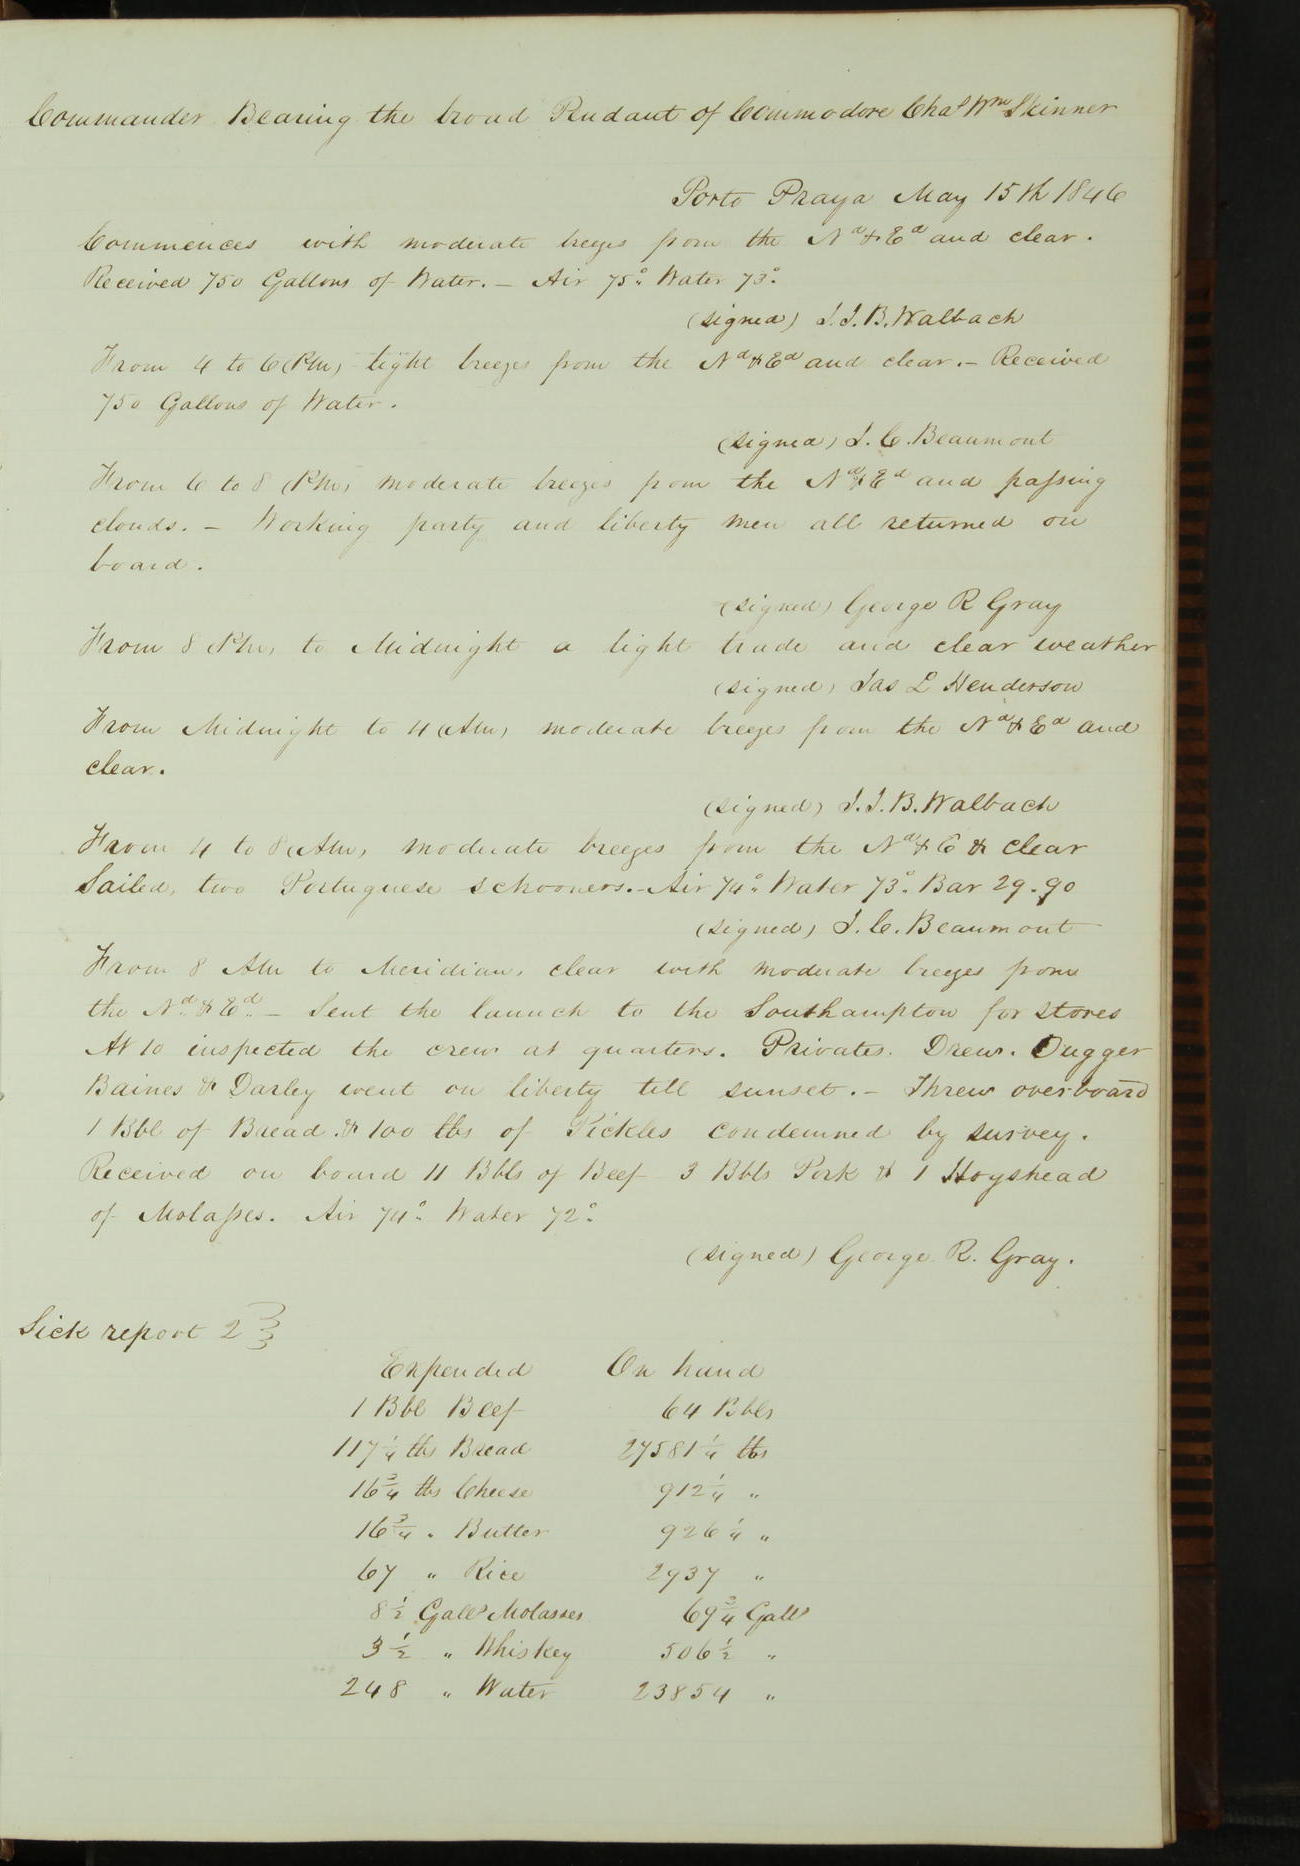 Commander Bearing the broad Pendant of Commodore Chas Wm Skinner
Porto Praya May 15th 1846
Commences with moderate breezes from the Nd & Ed and clear.
Received 750 Gallons of Water. — Air 75° Water 73°
(signed) J.J.B. Walbach
From 4 to 6 (Pm) light breezes from the Nd & Ed and clear. — Received
750 Gallons of Water.
(signed) J. C. Beaumont
From 6 to 8 (Pm) moderate breezes from the Nd & Ed and passing
clouds. — Working party and liberty men all returned on
board.
(signed) George R Gray
From 8 (Pm) to Midnight a light trade and clear weather
(signed) Jas L Henderson
From Midnight to 4 (Am) moderate breezes from the Nd & Ed and
clear.
(signed) J.J.B. Walbach
From 4 to 8 (Am) moderate breezes from the Nd & E & clear
Sailed, two Portuguese schooners. — Air 74° Water 73° Bar 29.90
(signed) J. C. Beaumont
From 8 Am to Meridian, clear with moderate breezes from
the Nd & Ed — Sent the launch to the Southampton for stores
At 10 inspected the crew at quarters. Privates. Drew. Dugger
Baines & Darley went on liberty till sunset. — Threw overboard
1 Bbl of Bread & 100 lbs of Pickles condemned by survey.
Received on board 11 Bbls of Beef 3 Bbls Pork & 1 Hogshead
of Molasses. Air 74° Water 72°
(signed) George R. Gray.
Sick report 2
Expended On hand
1 Bbl Beef 64 Bbls
117 1/4 lbs Bread 27581 1/4 lbs
16 3/4 lbs Cheese 912 1/4 "
16 3/4 " Butter 926 1/4 "
67 " Rice 2937 "
8 1/2 Galls Molasses 69 3/4 Galls
3 1/2 " Whiskey 506 1/2 "
248 " Water 23854 "